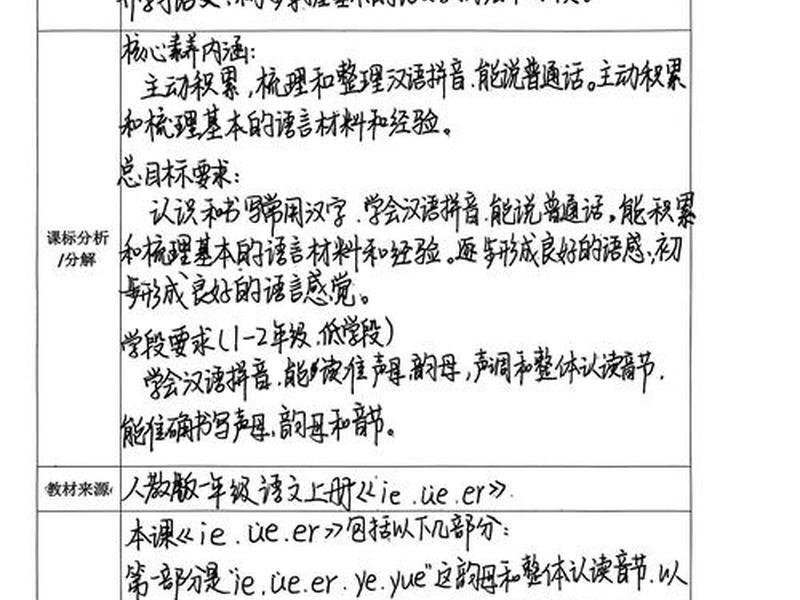 核心素养内涵:
主动积累,梳理和整理汉语拼音.能说普通话。主动积累
和梳理基本的语言材料和经验。
总目标要求:
认识和书写常用汉字.学会汉语拼音.能说普通话。能积累
和梳理基本的语言材料和经验。逐步形成良好的语感,初
步形成良好的语言感觉。
课标分析
/分解
学段要求(1-2年级.低学段)
学会汉语拼音.能读准声母,韵母,声调和整体认读音节.
能准确书写声母,韵母和音节。
教材来源
人教版一年级语文上册《ie.üe.er》.
本课《ie.üe.er》包括以下几部分:
第一部分是"ie.üe.er.ye.yue"这韵母和整体认读音节.以